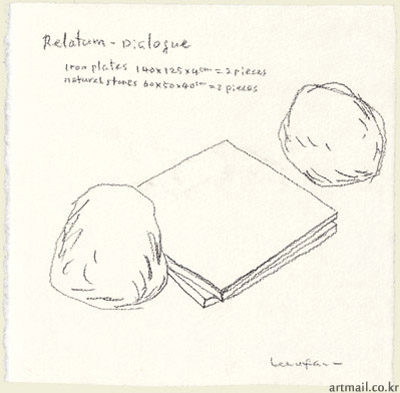 Relatum - Dialogue
iron plates 140x125x4cm = 2 pieces
natural stones 60x50x40cm = 2 pieces
artmail.co.kr